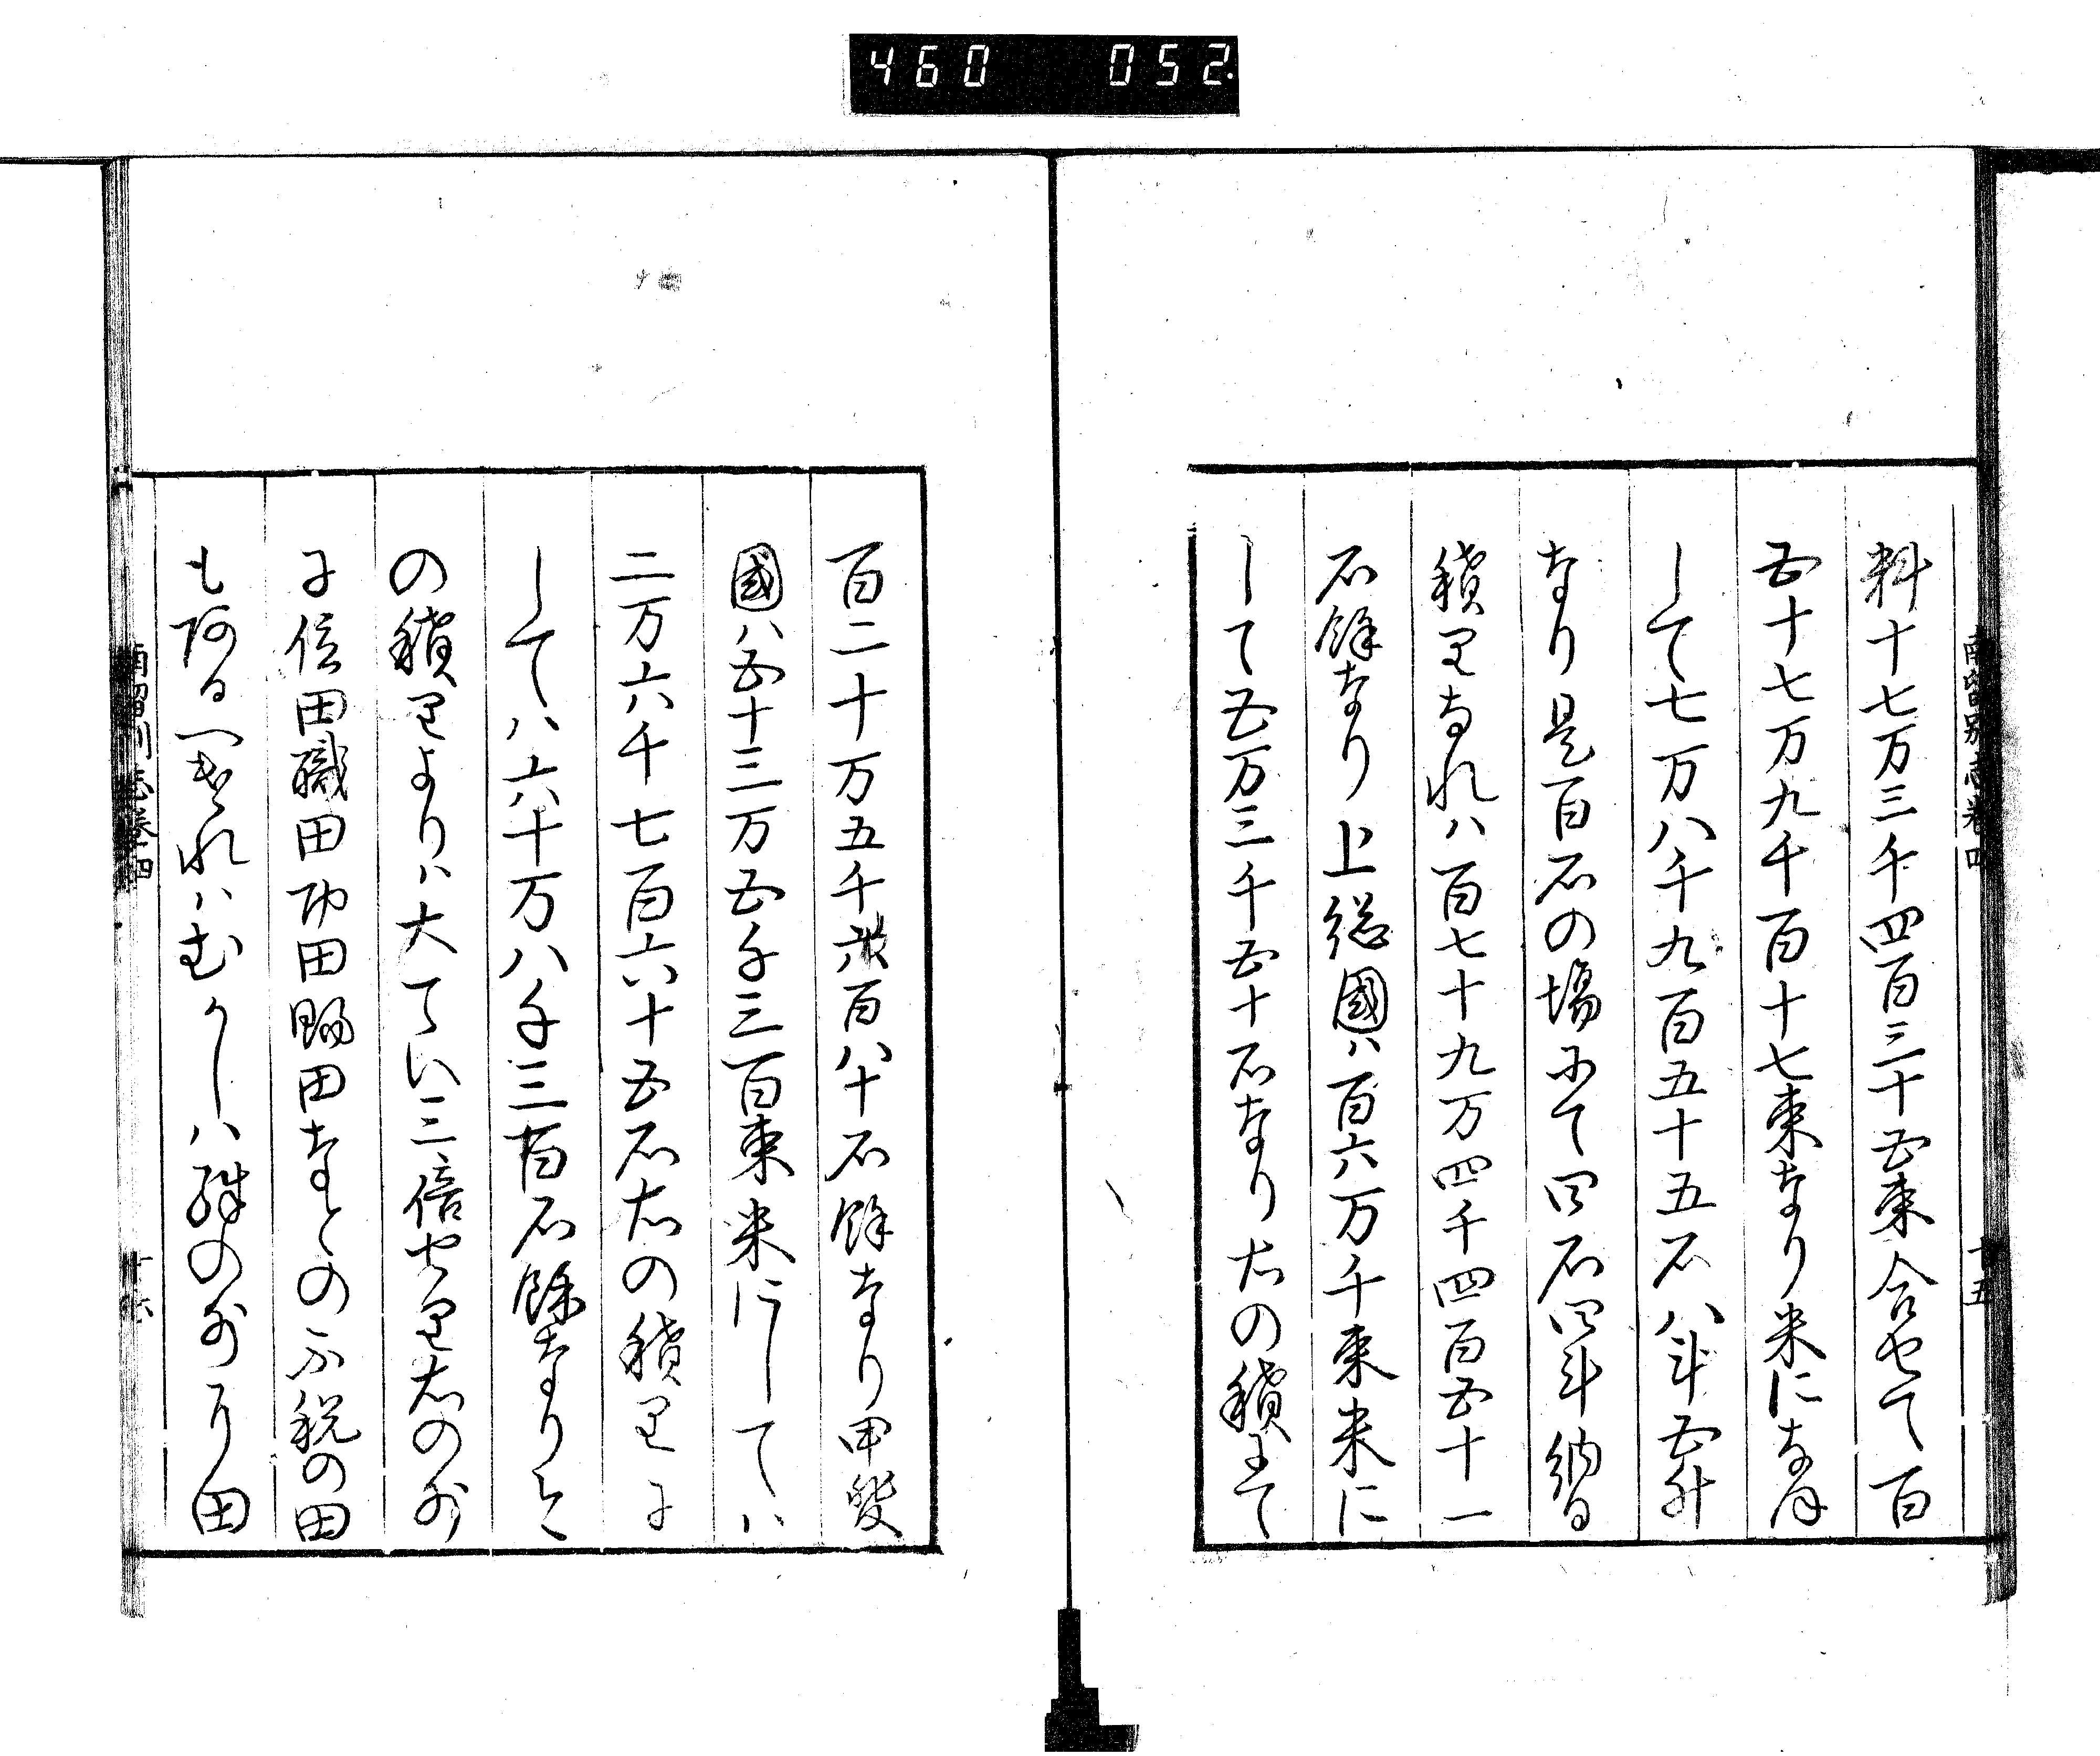 460 052
南留別志巻四 十五
料十七万三千四百三十五束合せて百
五十七万九千百十七束なり米になほ
して七万八千九百五十五石八斗五升
なり是百石の場にて四石四斗納る
積りなれハ百七十九万四千四百五十一
石餘なり上総國ハ百六万千束米に
して五万三千五十石なり右の積にて
百二十万五千六百八十石餘なり甲斐
國ハ五十三万五千三百束米にしてハ
二万六千七百六十五石右の積りに
してハ六十万八千三百石餘なり今
の積りよりハ大てい三倍せり右の外
に位田職田功田賜田なとの不税の田
も阿るへけれハむかしハ殊の外に田
南留別志巻四 十六